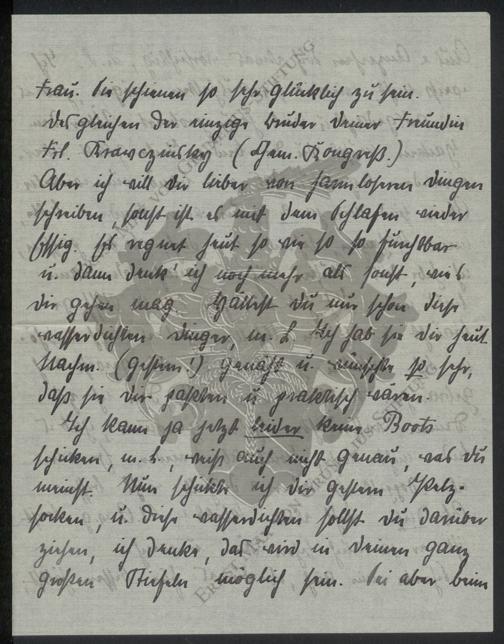 Frau. Sie schienen so sehr glücklich zu sein.
Desgleichen der einzige Bruder Deiner Freundin
Frl. Krawczinsky (Gem. Kongreß.)
Aber ich will Dir lieber von harmloseren Dingen
schreiben sonst ist es mit dem Schlafen wieder
Essig. Es regnet heut so wie so so furchtbar
u. dann denk' ich noch mehr als sonst, wie's
Dir gehen mag. Hättest Du nur schon diese
wasserdichten Dinger, m. L. Ich hab sie Dir heut
Nachm. (gestern!) genäht u. wünschte so sehr,
daß sie Dir paßten u. praktisch wären.
Ich kann ja jetzt leider keine Boots
schicken, m. L., weiß auch nicht genau, was Du
meinst. Nun schickte ich Dir gestern Pelz-
socken, u. diese wasserdichten sollst Du darüber
ziehen, ich denke, das wird in Deinen ganz
großen Stiefeln möglich sein. Sei aber beim